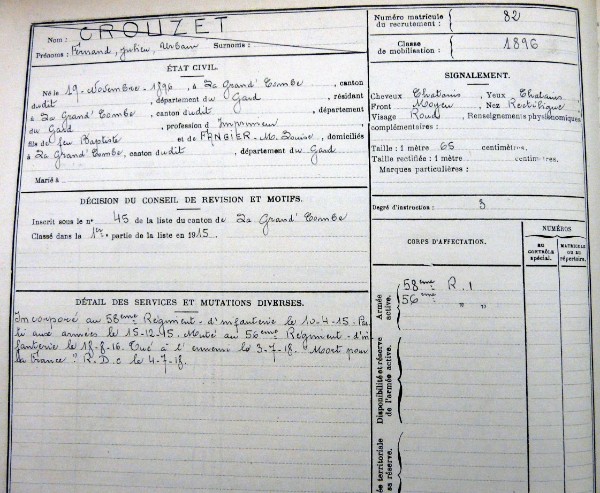 Nom : CROUZET
Prénoms : Fernand, Julien, Urbain Surnoms :
ÉTAT CIVIL.
Né le 19 Novembre 1896, à La Grand' Combe, canton
dudit, département du Gard, résidant
à La Grand' Combe, canton dudit, département
du Gard, profession d Imprimeur
fils de feu Baptiste et de FARGIER M. Louise, domiciliés
à La Grand' Combe, canton dudit, département du Gard
Marié à
DÉCISION DU CONSEIL DE REVISION ET MOTIFS.
Inscrit sous le n° 45 de la liste du canton de La Grand' Combe
Classé dans la 1re partie de la liste en 1915.
DÉTAIL DES SERVICES ET MUTATIONS DIVERSES.
Incorporé au 58eme Régiment d'infanterie le 10-4-15 - Par-
ti aux armées le 15-12-15. Muté au 56eme Régiment d'in
fanterie le 18-8-16. Tué à l'ennemi le 3-7-18. "Mort pour
la France" R.D.C le 4-7-18.
Numéro matricule du recrutement : 82
Classe de mobilisation : 1896
SIGNALEMENT.
Cheveux Chatains, Yeux Chatains
Front Moyen, Nez Rectiligne
Visage Rond, Renseignements physionomiques
complémentaires :
Taille : 1 mètre 65 centimètres.
Taille rectifiée : 1 mètre centimètres.
Marques particulières :
Degré d'instruction : 3
CORPS D'AFFECTATION.
NUMÉROS
AU CONTRÔLE spécial.
MATRICULE OU DU répertoire.
Armée active.
58eme R.I
56eme " "
Disponibilité et réserve de l'armée active.